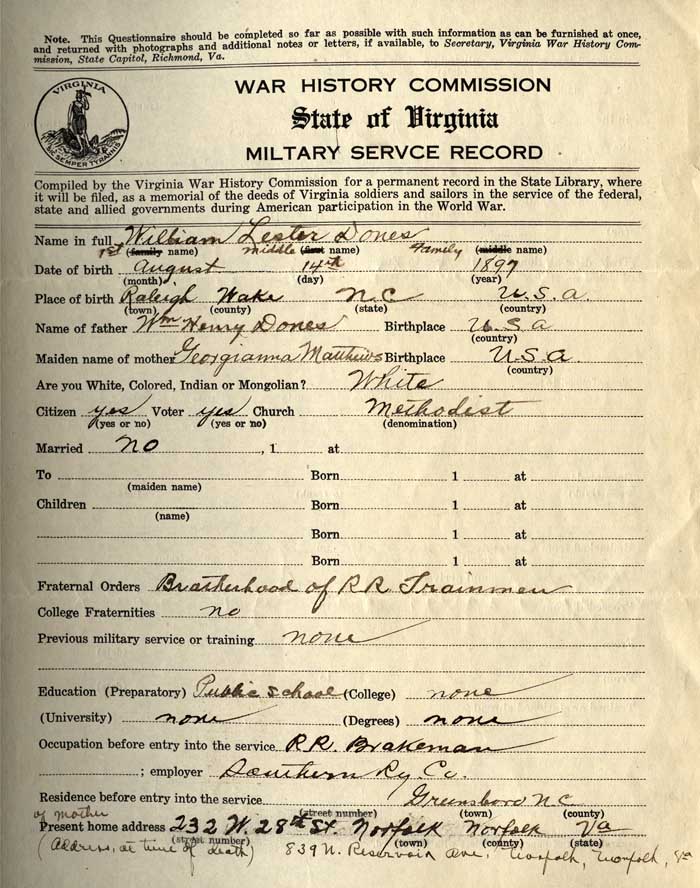 Note. This Questionnaire should be completed so far as possible with such information as can be furnished at once,
and returned with photographs and additional notes or letters, if available, to Secretary, Virginia War History Com-
mission, State Capitol, Richmond, Va.
VIRGINIA
SIC SEMPER TYRANNIS
WAR HISTORY COMMISSION
State of Virginia
MILTARY SERVCE RECORD
Compiled by the Virginia War History Commission for a permanent record in the State Library, where
it will be filed, as a memorial of the deeds of Virginia soldiers and sailors in the service of the federal,
state and allied governments during American participation in the World War.
Name in full William Lester Dones
1st (family name) middle (first name) family (middle name)
Date of birth August 14th 1897
(month) (day) (year)
Place of birth Raleigh Wake N.C U.S.a.
(town) (county) (state) (country)
Name of father Wm Henry Dones Birthplace U.S a
(country)
Maiden name of mother Georgianna Matthews Birthplace U.S.a
(country)
Are you White, Colored, Indian or Mongolian? White
Citizen yes Voter yes Church Methodist
(yes or no) (yes or no) (denomination)
Married no , 1 at
To Born 1 at
(maiden name)
Children Born 1 at
(name)
Born 1 at
Born 1 at
Fraternal Orders Brotherhood of R R Trainmen
College Fraternities no
Previous military service or training none
Education (Preparatory) Public school (College) none
(University) none (Degrees) none
Occupation before entry into the service R.R. Brakeman
; employer Southern Ry. Co.
Residence before entry into the service Greensboro N C
of mother (street number) (town) (county)
Present home address 232 W. 28th St. Norfolk Norfolk Va
(street number) (town) (county) (state)
(Address, at time of death) 839 N. Reservoir Ave, Norfolk, Norfolk, Va